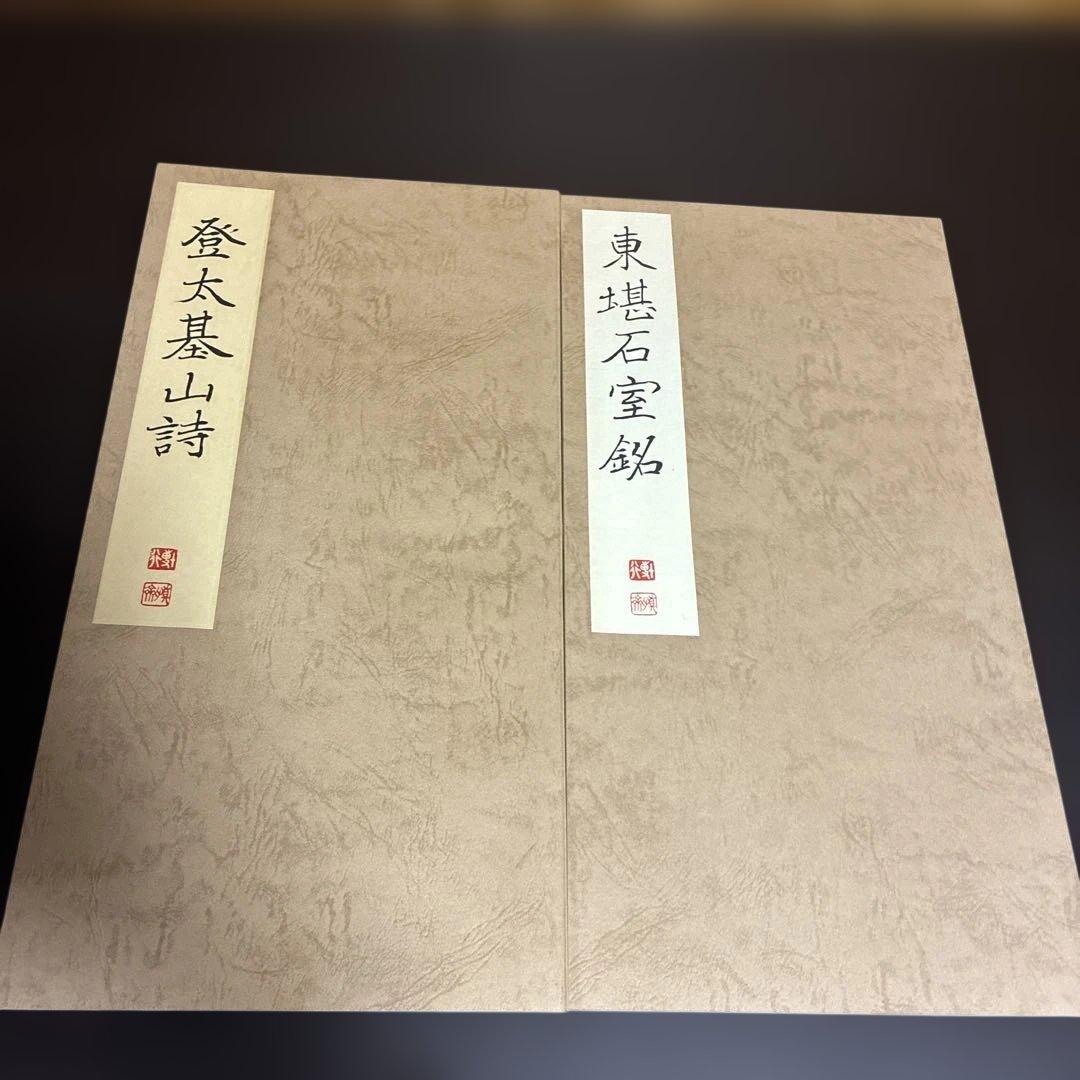 登太基山詩
東堪石室銘